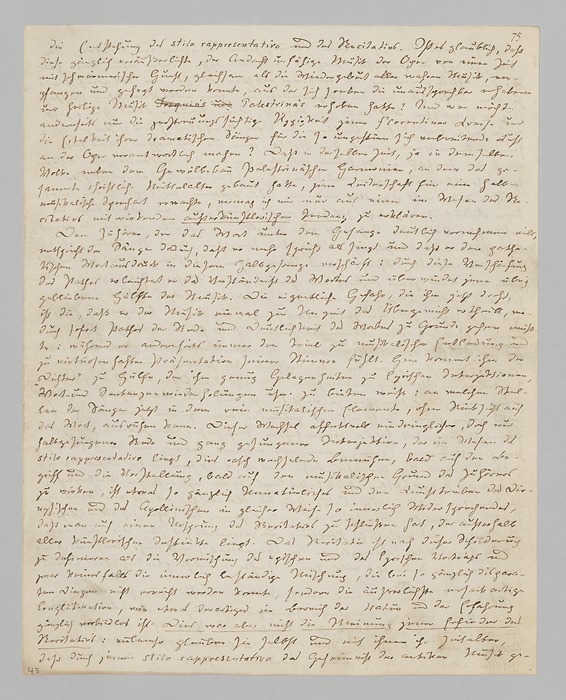 75
die Entstehung des stilo rappresentativo und des Recitativs. Ist es glaublich, daß
diese gänzlich veräußerlichte, der Andacht unfähige Musik der Oper von einer Zeit
mit schwärmerischer Gunst, gleichsam als die Wiedergeburt aller wahren Musik, em-
pfangen und gehegt werden konnte, aus der sich soeben die unaussprechbar erhabene
und heilige Musik Palestrina's erhoben hatte? Und wer möchte
andrerseits nur die zerstreuungssüchtige Üppigkeit jener Florentiner Kreise und
die Eitelkeit ihrer dramatischen Sänger für die so ungestüm sich verbreitende Lust
an der Oper verantwortlich machen? Daß in derselben Zeit, ja in demselben
Volke neben dem Gewölbebau Palestrinischer Harmonien, an dem das ge-
sammte christliche Mittelalter gebaut hatte, jene Leidenschaft für eine halb-
musikalische Sprechart erwachte, vermag ich mir nur aus einer im Wesen des Re-
citativs mitwirkenden außerkünstlerischen Tendenz zu erklären.
Dem Zuhörer, der das Wort unter dem Gesange deutlich vernehmen will,
entspricht der Sänger dadurch, daß er mehr spricht als singt und daß er den pathe-
tischen Wortausdruck in diesem Halbgesange verschärft: durch diese Verschärfung
des Pathos erleichtert er das Verständniß des Wortes und überwindet jene übrig
gebliebene Hälfte der Musik. Die eigentliche Gefahr, die ihm jetzt droht,
ist die, daß er der Musik einmal zur Unzeit das Übergewicht ertheilt, wo-
durch sofort Pathos der Rede und Deutlichkeit des Wortes zu Grunde gehen müß-
te: während er andrerseits immer den Trieb zu musikalischer Entladung und
zu virtuosenhafter Präsentation seiner Stimme fühlt. Hier kommt ihm der
"Dichter" zu Hülfe, der ihm genug Gelegenheiten zu lyrischen Interjektionen,
Wort- und Sentenzenwiederholungen usw. zu bieten weiß: an welchen Stel-
len der Sänger jetzt in dem rein musikalischen Elemente, ohne Rücksicht auf
das Wort, ausruhen kann. Dieser Wechsel affektvoll eindringlicher, doch nur
halbgesungener Rede und ganz gesungener Interjektion, der im Wesen des
stilo rappresentativo liegt, dies rasch wechselnde Bemühen, bald auf den Be-
griff und die Vorstellung, bald auf den musikalischen Grund des Zuhörers
zu wirken, ist etwas so gänzlich Unnatürliches und den Kunsttrieben des Dio-
nysischen und des Apollinischen in gleicher Weise so innerlich Widersprechendes,
daß man auf einen Ursprung des Recitativs zu schließen hat, der außerhalb
aller künstlerischen Instinkte liegt. Das Recitativ ist nach dieser Schilderung
zu definieren als die Vermischung des epischen und des lyrischen Vortrags und
zwar keinesfalls die innerlich beständige Mischung, die bei so gänzlich dispara-
ten Dingen nicht erreicht werden konnte, sondern die äußerlichste mosaikartige
Conglutination, wie etwas Derartiges im Bereich der Natur und der Erfahrung
gänzlich vorbildlos ist. Dies war aber nicht die Meinung jener Erfinder des
Recitativs: vielmehr glauben sie selbst und mit ihnen ihr Zeitalter,
daß durch jenen stilo rappresentativo das Geheimniß der antiken Musik ge-
43